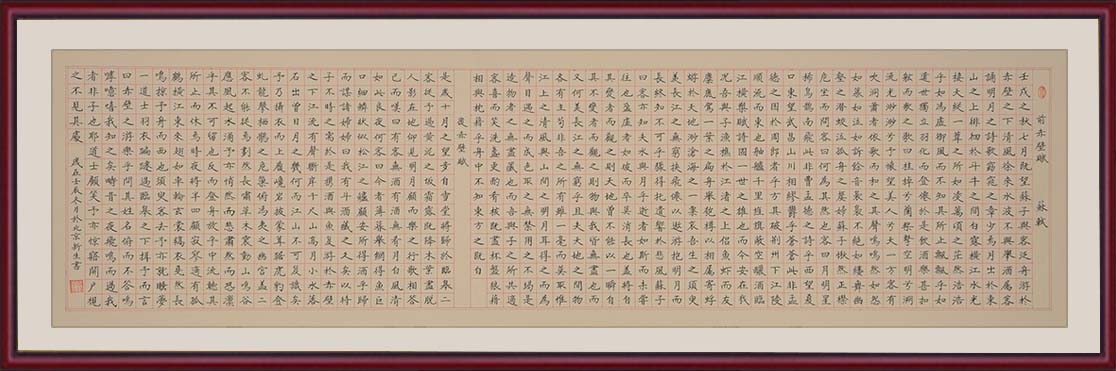 前赤壁賦 蘇軾
壬戌之秋七月既望蘇子與客泛舟游於
赤壁之下清風徐來水波不興舉酒屬客
誦明月之詩歌窈窕之章少焉月出於東
山之上徘徊於斗牛之間白露橫江水光
接天縱一葦之所如凌萬頃之茫然浩浩
乎如馮虛御風而不知其所止飄飄乎如
遺世獨立羽化而登僊於是飲酒樂甚扣
舷而歌之歌曰桂棹兮蘭槳擊空明兮溯
流光渺渺兮予懷望美人兮天一方客有
吹洞簫者依歌而和之其聲嗚嗚然如怨
如慕如泣如訴餘音裊裊不絕如縷舞幽
壑之潛蛟泣孤舟之嫠婦蘇子愀然正襟
危坐而問客曰何為其然也客曰月明星
稀烏鵲南飛此非曹孟德之詩乎西望夏
口東望武昌山川相繆鬱乎蒼蒼此非孟
德之困於周郎者乎方其破荊州下江陵
順流而東也舳艫千里旌旗蔽空釃酒臨
江橫槊賦詩固一世之雄也而今安在哉
況吾與子漁樵於江渚之上侶魚蝦而友
麋鹿駕一葉之扁舟舉匏樽以相屬寄蜉
蝣於天地渺滄海之一粟哀吾生之須臾
羨長江之無窮挾飛僊以遨游抱明月而
長終知不可乎驟得托遺響於悲風蘇子
曰客亦知夫水與月乎逝者如斯而未嘗
往也盈虛者如彼而卒莫消長也蓋將自
其變者而觀之則天地曾不能以一瞬自
其不變者而觀之則物與我皆無盡也而
又何羨長江之無窮乎且夫天地之間物
各有主苟非吾之所有雖一毫而莫取惟
江上之清風與山間之明月耳得之而為
聲目遇之而成色取之無禁用之不竭是
造物者之無盡藏也而吾與子之所共適
客喜而笑洗盞更酌肴核既盡杯盤狼藉
相與枕藉乎舟中不知東方之既白
後赤壁賦
是歲十月之望步自雪堂將歸於臨皋二
客從予過黃泥之坂霜露既降木葉盡脫
人影在地仰見明月顧而樂之行歌相答
已而嘆曰有客無酒有酒無肴月白風清
如此良夜何客曰今者薄暮舉網得魚巨
口細鱗狀似松江之鱸顧安所得酒乎歸
而謀諸婦婦曰我有斗酒藏之久矣以待
子不時之需於是攜酒與魚復游於赤壁
之下江流有聲斷岸千尺山高月小水落
石出曾日月之幾何而江山不可復識矣
予乃攝衣而上履巉岩披蒙茸踞虎豹登
虬龍攀棲鶻之危巢俯馮夷之幽宮蓋二
客不能從焉劃然長嘯草木震動山鳴谷
應風起水涌予亦悄然而悲肅然而恐凜
乎其不可留也反而登舟放乎中流聽其
所止而休焉時夜將半四顧寂寥適有孤
鶴橫江東來翅如車輪玄裳縞衣戛然長
鳴掠予舟而西也須臾客去予亦就睡夢
一道士羽衣蹁躚過臨皋之下揖予而言
曰赤壁之游樂乎問其姓名俯而不答嗚
呼噫嘻我知之矣疇昔之夜飛鳴而過我
者非子也耶道士顧笑予亦驚寤開戶視
之不見其處 歲在壬辰冬月於北京新生書